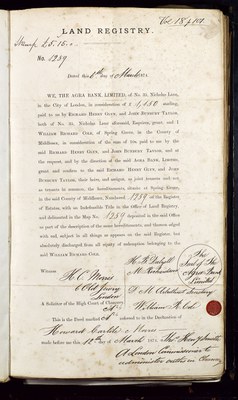 Vol 18 p 101
LAND REGISTRY.
Stamp £5.15.0
No. 1259
Dated this day of March
WE, THE AGRA BANK, LIMITED, of No. 35, Nicholas Lane,
in the City of London, in consideration of £ 1,150 sterling,
paid to us by RICHARD HENRY GLYN, and JOHN
both of No. 35, Nicholas Lane aforesaid, Esquires, grant, and I
WILLIAM RICHARD COLE, of Spring Grove, in the County of
Middlesex, in consideration of the sum of 10s. paid to me by the
said RICHARD HENRY GLYN, and JOHN and at
the request, and by the direction of the said AGRA BANK, LIMITED,
grant, and confirm to the said RICHARD HENRY GLYN, and JOHN
their heirs, and assigns as joint tenants and not
as tenants in common, the hereditaments, situate at Spring Grove,
in the said County of Middlesex, Numbered 1259 of the Register
of Estates, with an Indefeasible Title in the Office of Land Registry,
and delineated in the Map No. 1259 deposited in the said Office
as part of the description of the same hereditaments, and thereon edged
with red, subject in all things as appears on the said Register, but
absolutely discharged from all equity of redemption belonging to the
said WILLIAM RICHARD COLE.
Witness
H. C. Morris
6 Old Jewry
London
A Solicitor of the High Court of Chancery
The Seal of The Agra Bank Limited
Secretary
William R. Cole
This is the Deed marked A referred to in the Declaration of
Howard Morris
made before me this 12th day of March
A London Commissioner to
administer oaths in Chancery